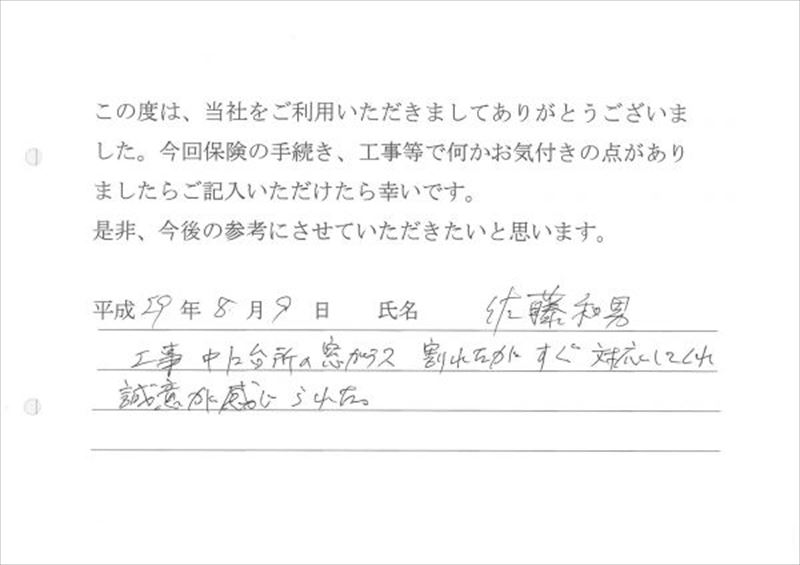 この度は、当社をご利用いただきましてありがとうございま
した。今回保険の手続き、工事等で何かお気付きの点があり
ましたらご記入いただけたら幸いです。
是非、今後の参考にさせていただきたいと思います。
平成 29 年 8 月 9 日 氏名 佐藤和男
工事中に台所の窓ガラス 割れたがすぐ対応してくれ
誠意が感じられた。